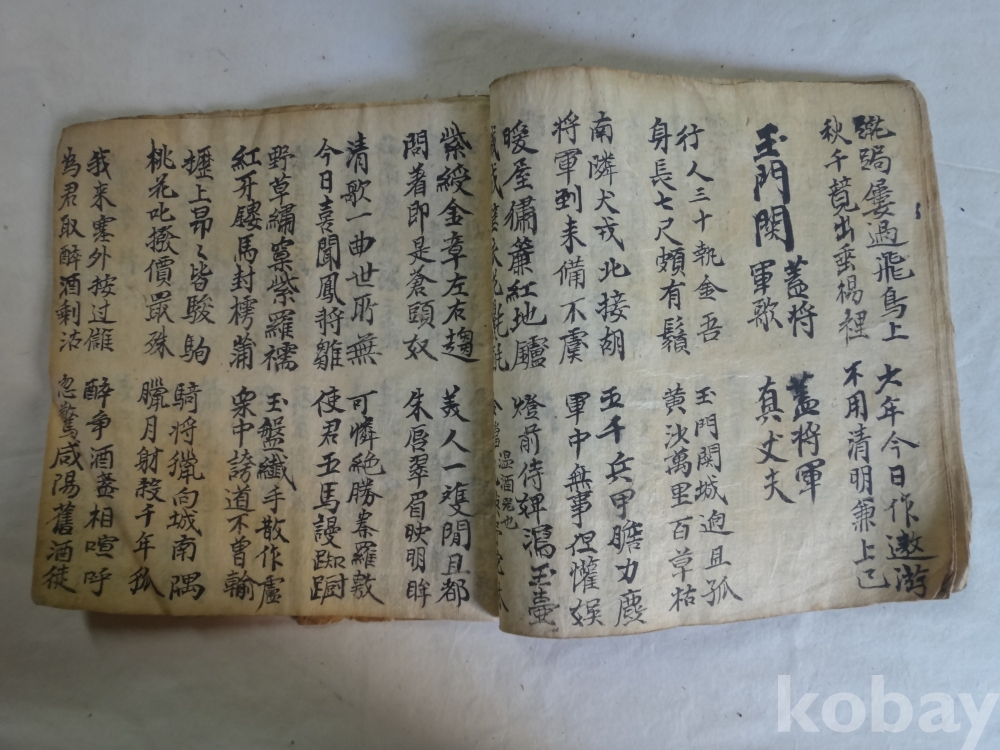 蹴踘屢過飛鳥上
秋千競出垂楊裡
大年今日作遨游
不用清明兼上巳
玉門関 蓋將
軍歌
蓋將軍
真丈夫
行人三十執金吾
身長七尺頗有鬚
玉門関城逈且孤
黃沙萬里百草枯
南隣犬戎北接胡
將軍到来備不虞
五千兵甲膽力麤
軍中無事但懽娛
暖屋繡簾紅地爐
燈前侍婢瀉玉壺
温酒兒也
紫綬金章左右趨
問著即是蒼頭奴
美人一雙閒且都
朱唇翠眉映明眸
清歌一曲世所無
今日喜聞鳳將雛
可憐絶勝秦羅敷
使君五馬謾踟躕
野草繡窠紫羅襦
紅牙鏤馬封樗蒲
玉盤纖手散作盧
衆中誇道不曾輸
櫪上昂々皆駿駒
桃花叱撥價最殊
騎將獵向城南隅
臘月射殺千年狐
我来塞外按过儲
為君取醉酒剩沽
醉争酒盞相喧呼
忽驚咸陽舊酒徒